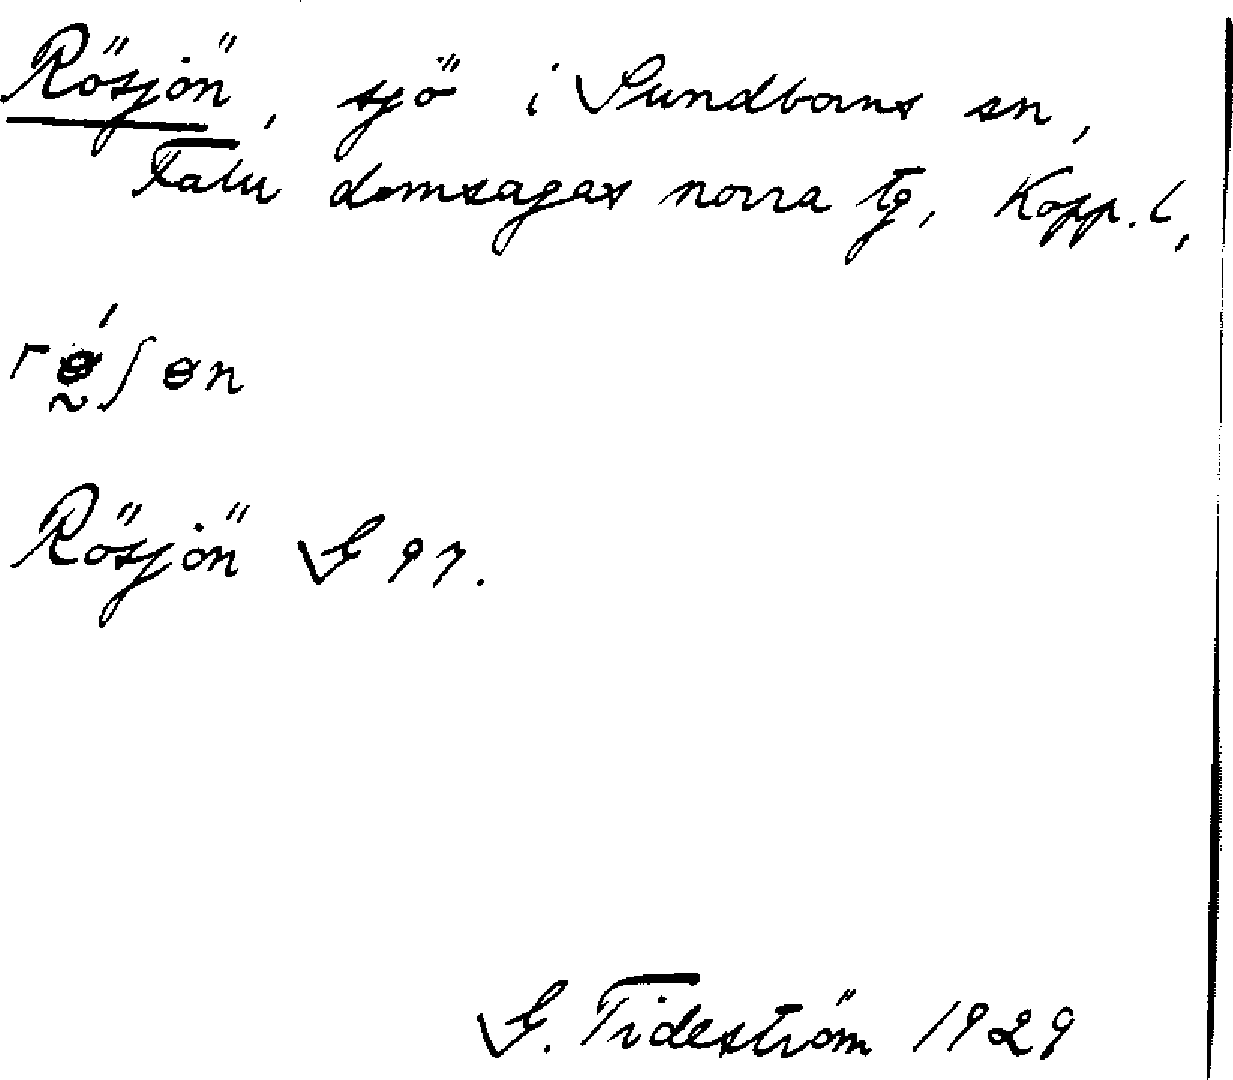 Rösjön, sjö i Sundborns sn,
Falu domsagas norra tg, Kopp. l,
rө̰́ʃөn
Rösjön G 97.
G. Tideström 1929